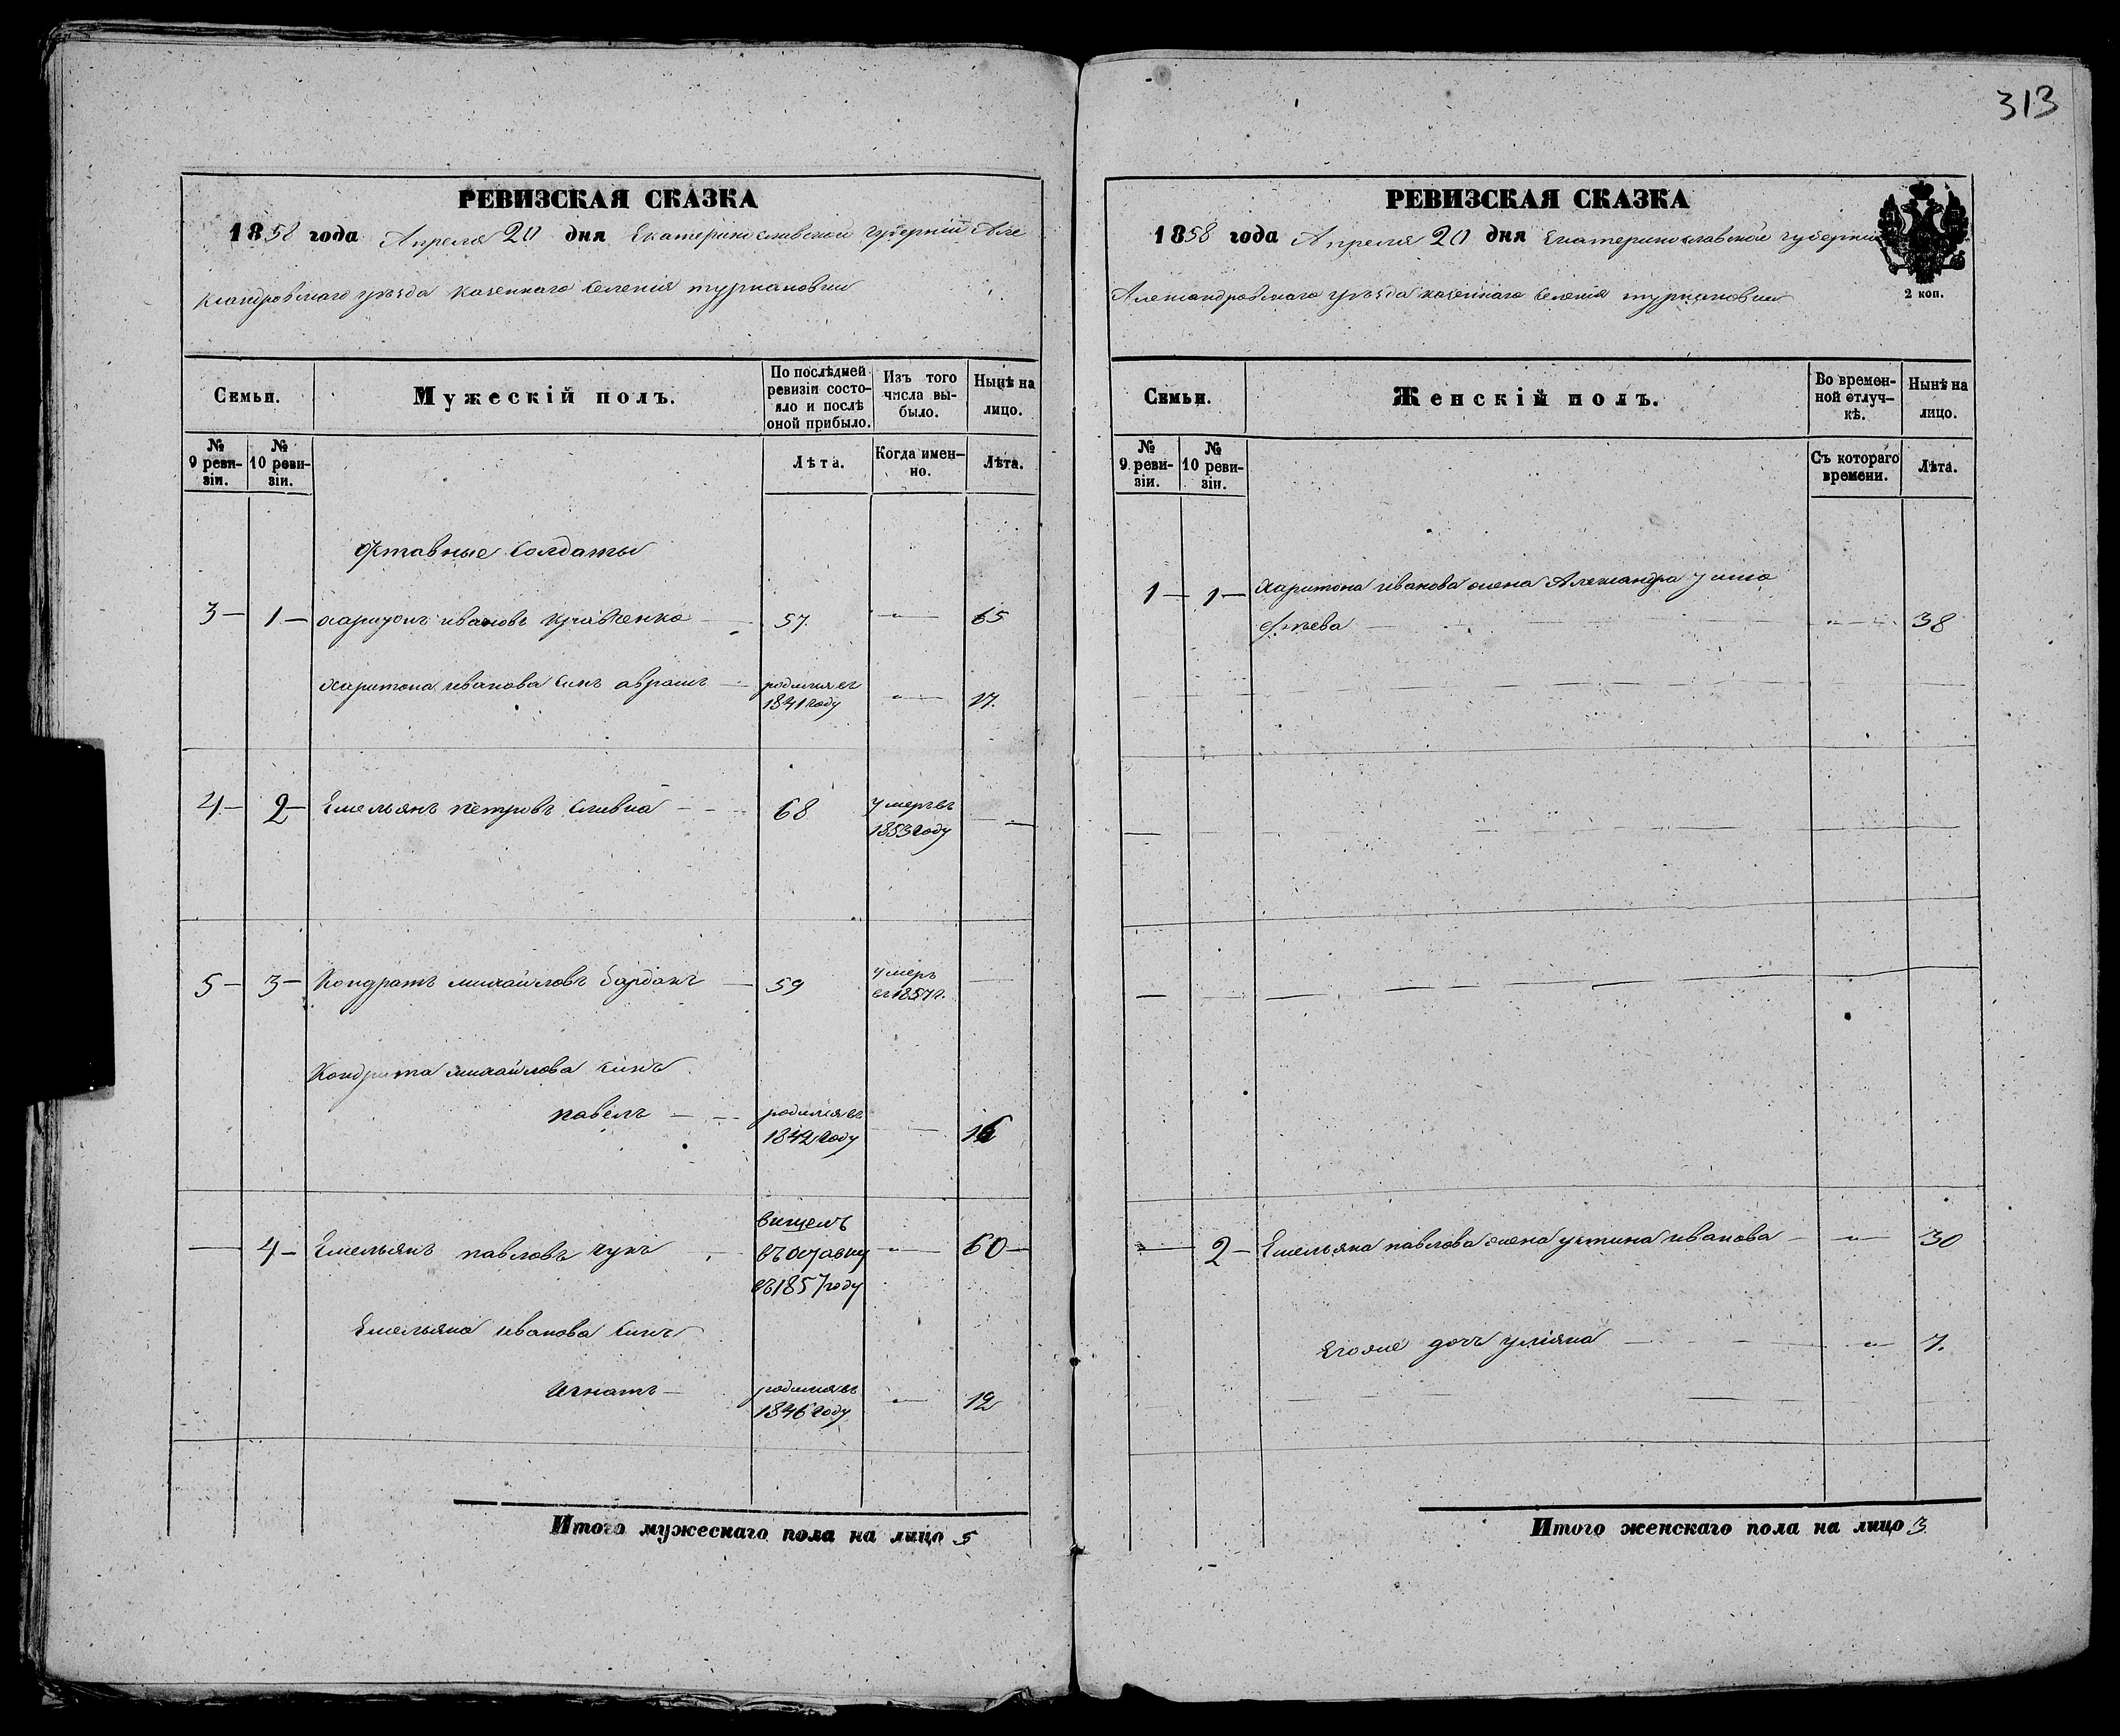 313
РЕВИЗСКАЯ СКАЗКА
1858 года Апреля 20 дня Екатеринославской губерніи Але
ксандровскаго уѣзда казеннаго селенія туркановки
Семьи.
Мужескій полъ.
По послѣдней ревизіи состояло и послѣ оной прибыло.
Изъ того числа выбыло.
Нынѣ на лицо.
№ 9 ревизіи.
№ 10 ревизіи.
Лѣта.
Когда именно.
Лѣта.
Отставные солдаты
3 — 1 — харитонъ ивановъ кравченко — 57. — 65
харитона иванова синъ аврамъ — родился въ 1841 году — 17.
4 — 2 — Емельянъ петровъ сливка — 68 умеръ въ 1853 году —
5 — 3 — Кондратъ михайловъ бардакъ — 59 умеръ въ 1857 г. —
Кондрата михайлова синъ
павелъ — родился въ 1842 году — 16
— 4 — Емельянъ павловъ чукъ вишелъ въ отставку въ 1857 году — 60 —
Емельяна иванова синъ
Игнатъ — родился въ 1846 году — 12
Итого мужескаго пола на лицо 5
РЕВИЗСКАЯ СКАЗКА
1858 года Апреля 20 дня Екатеринославской губерніи
Александровскаго уѣзда казеннаго селенія туркановки
2 коп.
Семьи.
Женскій полъ.
Во временной отлучкѣ.
Нынѣ на лицо.
№ 9 ревизіи.
№ 10 ревизіи.
Съ котораго времени.
Лѣта.
1 — 1 — Харитона иванова жена Александра
— 38
— 2 — Емельяна павлова жена устина иванова — 30
Егоже дочь уліяна — 7.
Итого женскаго пола на лицо 3